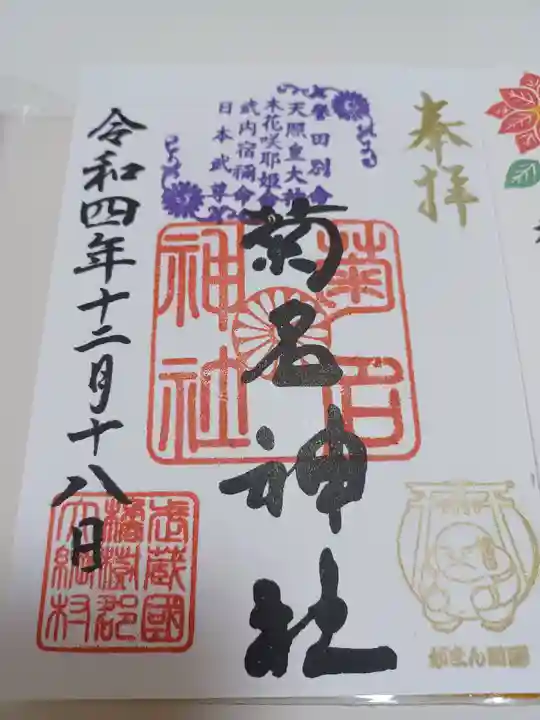 奉拝
誉田別命
天照皇大神
木花咲耶姫命
武内宿禰命
日本武尊
菊名神社
菊名
神社
令和四年十二月十八日
武蔵國
橘樹郡
大綱村
がまん